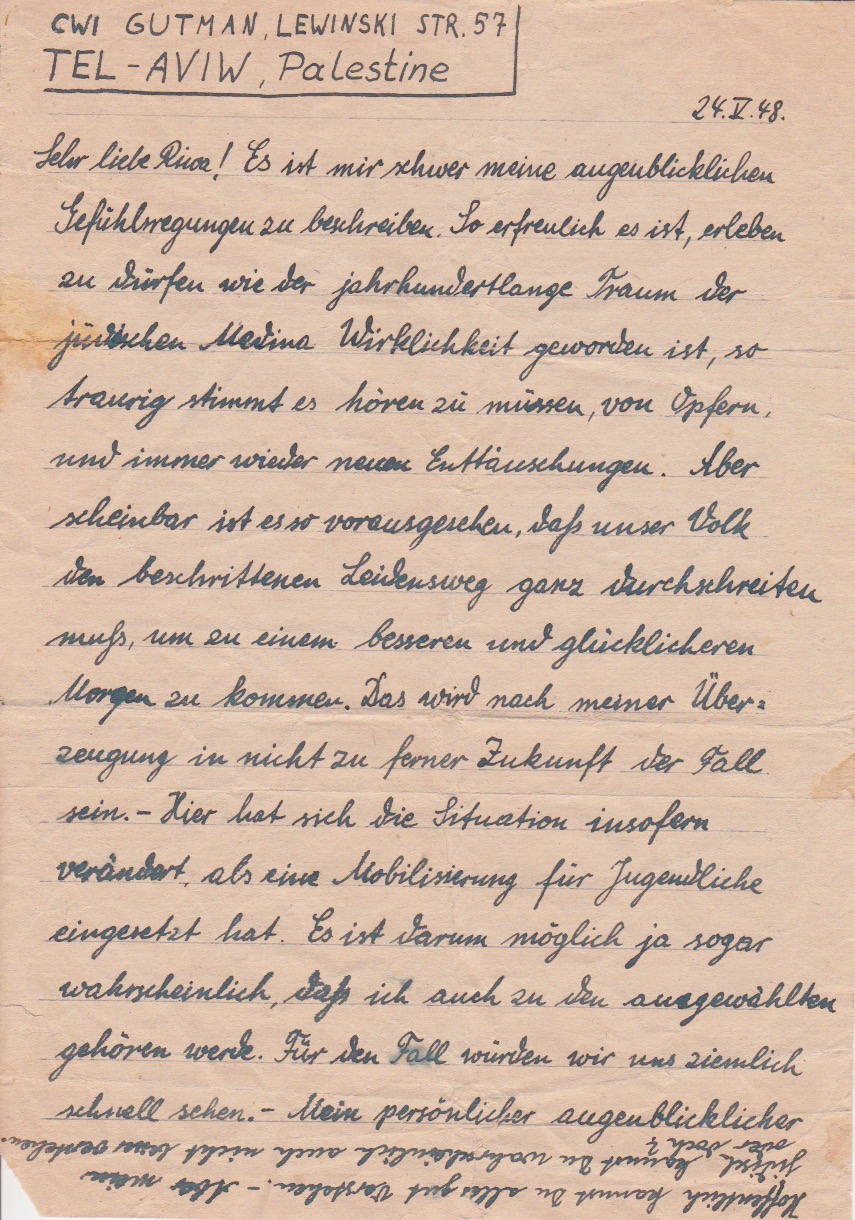 CWI GUTMAN, LEWINSKI STR. 57
TEL-AVIW, Palestine
24.V.48.
Sehr liebe Riwa! Es ist mir schwer meine augenblicklichen
Gefühlsregungen zu beschreiben. So erfreulich es ist, erleben
zu dürfen wie der jahrhundertlange Traum der
jüdischen Medina Wirklichkeit geworden ist, so
traurig stimmt es hören zu müssen, von Opfern,
und immer wieder neuen Enttäuschungen. Aber
scheinbar ist es so vorausgesehen, daß unser Volk
den beschrittenen Leidensweg ganz durchschreiten
muß, um zu einem besseren und glücklicheren
Morgen zu kommen. Das wird nach meiner Über=
zeugung in nicht zu ferner Zukunft der Fall
sein.- Hier hat sich die Situation insofern
verändert, als eine Mobilisierung für Jugendliche
eingesetzt hat. Es ist darum möglich ja sogar
wahrscheinlich, daß ich auch zu den ausgewählten
gehören werde. Für den Fall würden wir uns ziemlich
schnell sehen.- Mein persönlicher augenblicklicher
Hoffentlich kannst du alles gut verstehen.- Aber mein
Jidisch kannst du wahrscheinlich auch nicht besser verstehen.
oder doch?